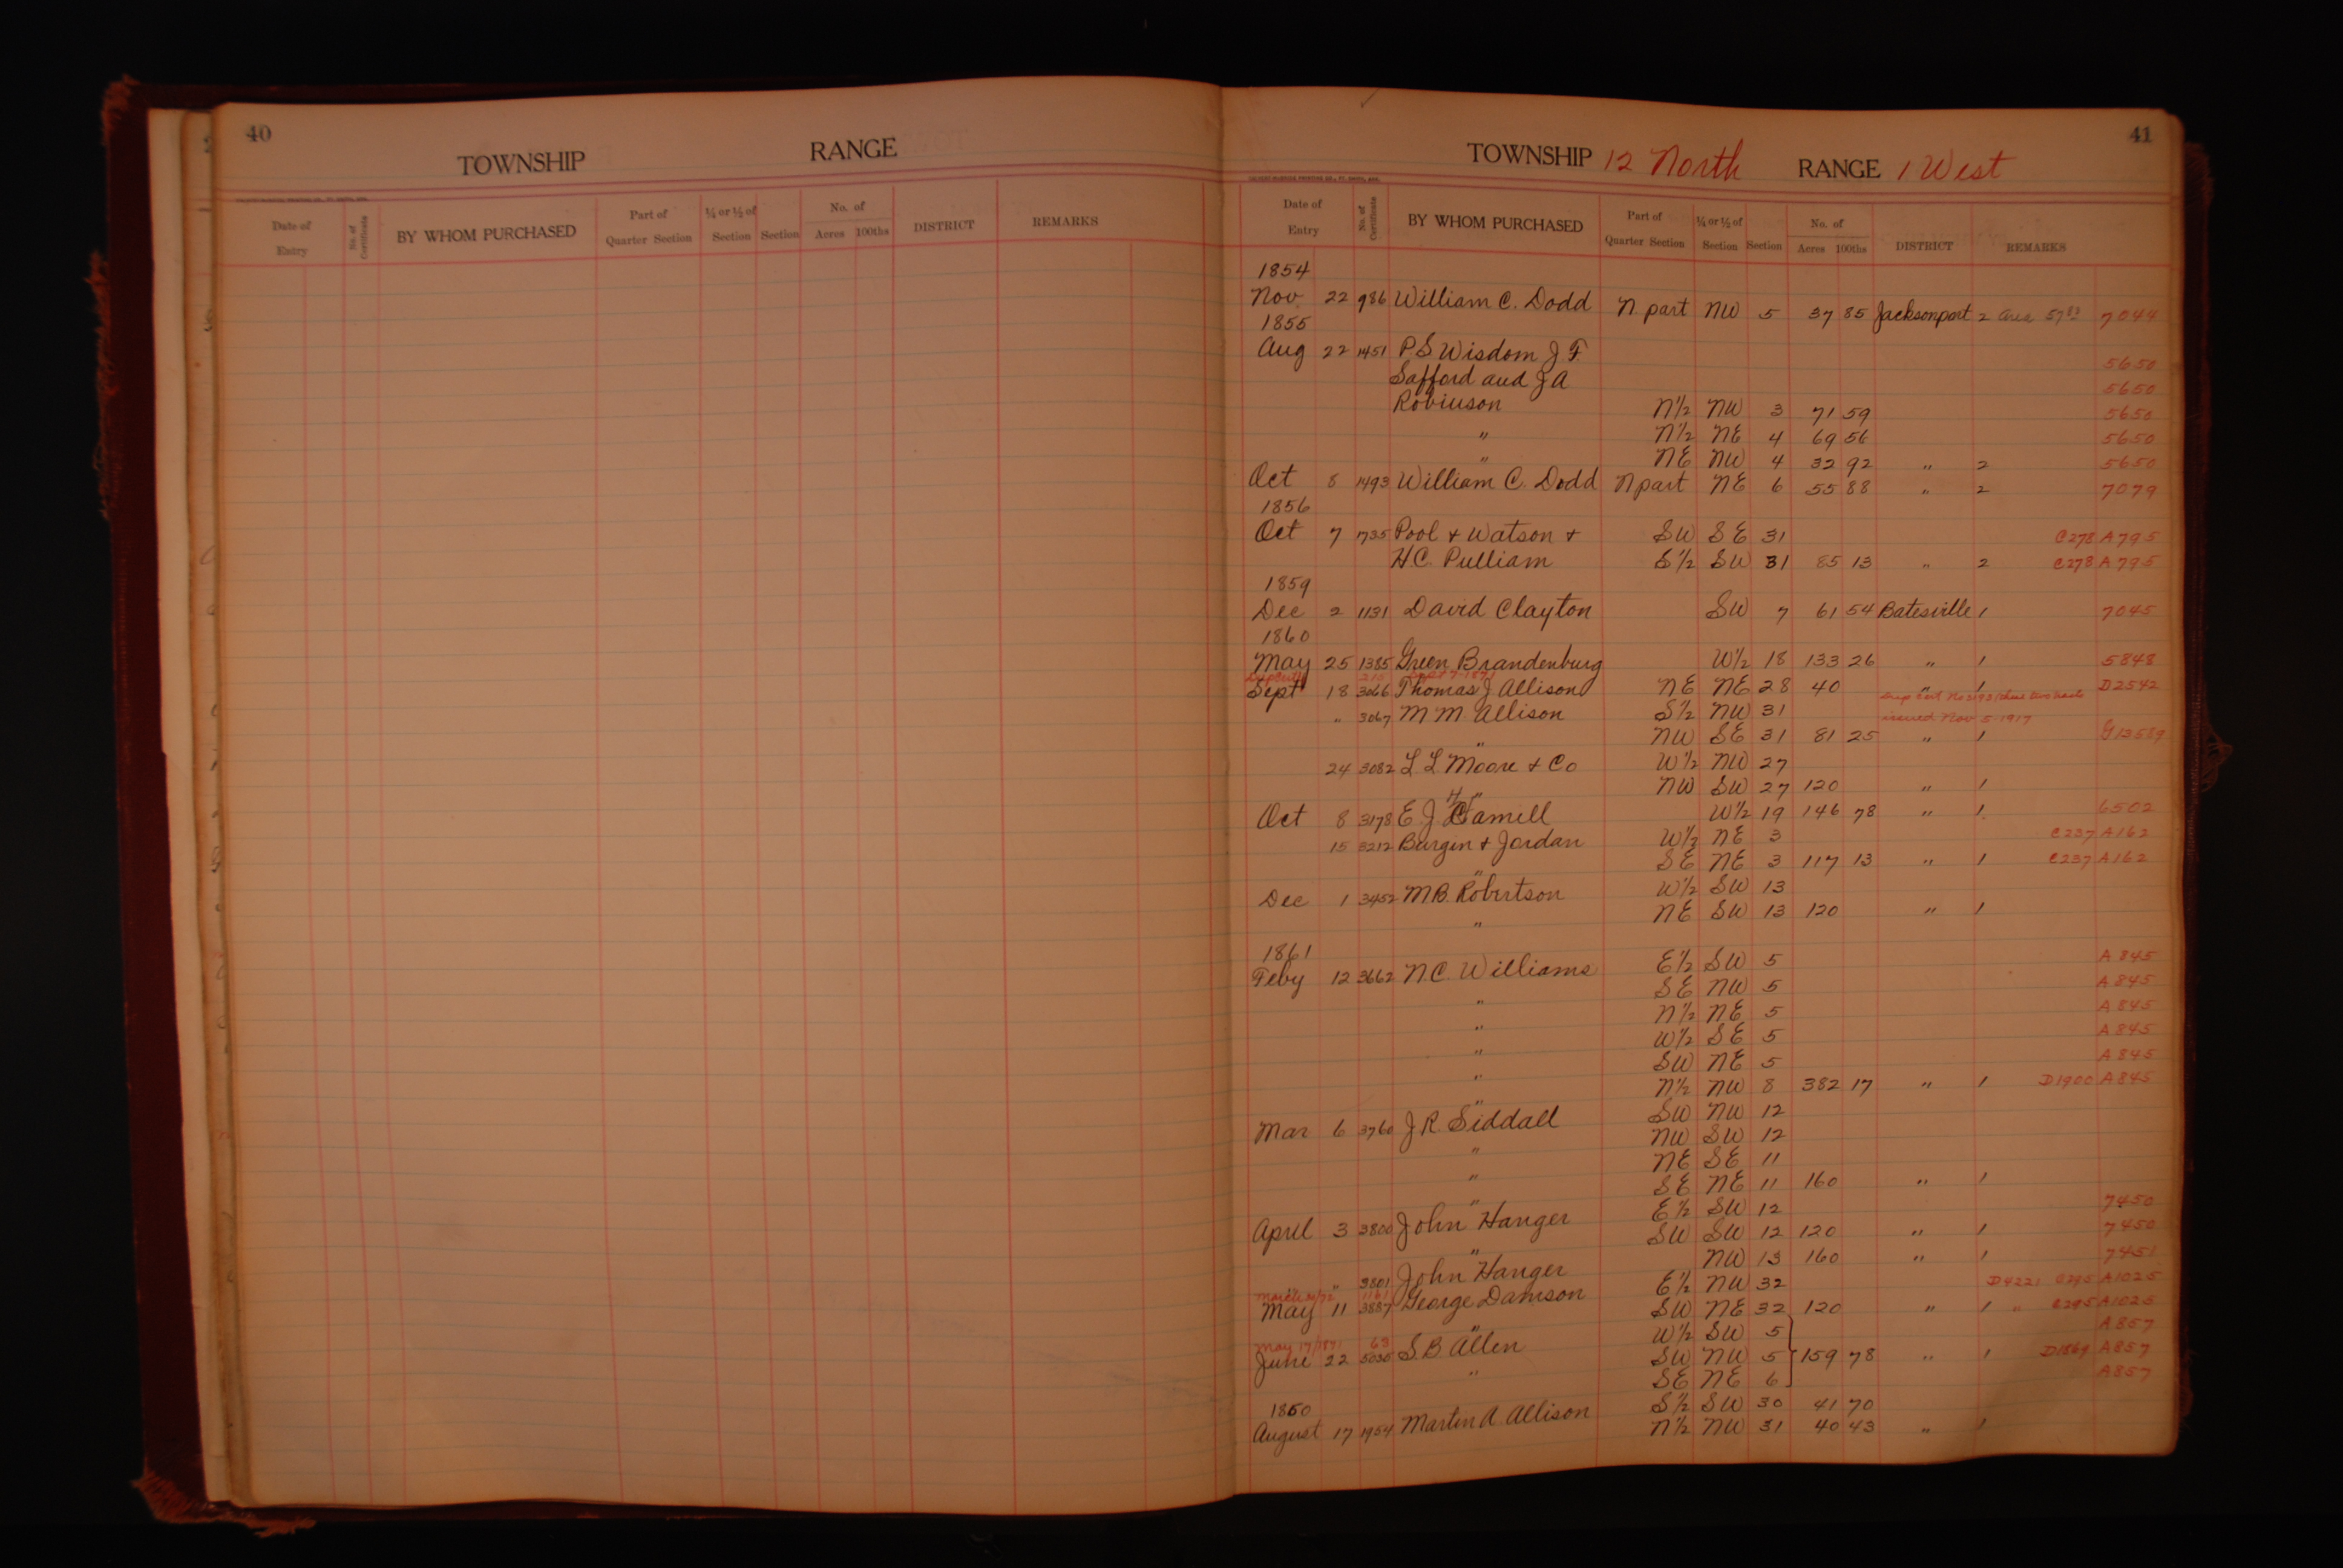 40
TOWNSHIP RANGE
Date of Entry No. of Certificate BY WHOM PURCHASED Part of Quarter Section ¼ or ½ of Section Section No. of Acres 100ths DISTRICT REMARKS
41
TOWNSHIP 12 North RANGE 1 West
Date of Entry No. of Certificate BY WHOM PURCHASED Part of Quarter Section ¼ or ½ of Section Section No. of Acres 100ths DISTRICT REMARKS
1854
Nov 22 986 William C. Dodd N part NW 5 37 85 Jacksonport 2 area 7044
1855
Aug 22 1451 P.S. Wisdom J.F. 5650
Safford and J A 5650
Robinson N½ NW 3 71 59 5650
" N½ NE 4 69 56 5650
" NE NW 4 32 92 " 2 5650
Oct 8 1493 William C. Dodd N part NE 6 55 88 " 2 7079
1856
Oct 7 1735 Pool & Watson & SW SE 31 C278 A795
H.C. Pulliam S½ SW 31 85 13 " 2 C278 A795
1859
Dec 2 1131 David Clayton SW 7 61 54 Batesville 1 7045
1860
May 25 1385 Green Brandenburg W½ 18 133 26 " 1 5848
Sept 18 3066 Thomas J Allison NE NE 28 40 " 1 D2542
" 3067 M M Allison S½ NW 31 issued Nov 5-1917
" NW SE 31 81 25 " 1 G13589
24 3082 L L Moore & Co W½ NW 27
" NW SW 27 120 " 1
Oct 8 3178 E. J. Camill W½ 19 146 78 " 1 6502
15 3212 Burgin & Jordan W½ NE 3 C237 A162
" SE NE 3 117 13 " 1 C237 A162
Dec 1 3452 M.B. Robertson W½ SW 13
" NE SW 13 120 " 1
1861
Feby 12 3662 N.C. Williams E½ SW 5 A845
" SE NW 5 A845
" N½ NE 5 A845
" W½ SE 5 A845
" SW NE 5 A845
" N½ NW 8 382 17 " 1 D1900 A845
Mar 6 3760 J R Siddall SW NW 12
" NW SW 12
" NE SE 11
" SE NE 11 160 " 1
April 3 3800 John Hanger E½ SW 12 7450
" SW SW 12 120 " 1 7450
" 3801 John Hanger NW 13 160 " 1 7451
1161
May 11 3887 George Damson E½ NW 32 D4221 C295 A1025
" SW NE 32 120 " 1 " C295 A1025
May 17/1871 63
June 22 5035 S.B Allen W½ SW 5 A857
" SW NW 5 159 78 " 1 D1869 A857
SE NE 6 A857
1860
August 17 1954 Martin A. Allison S½ SW 30 41 70
N½ NW 31 40 43 " 1